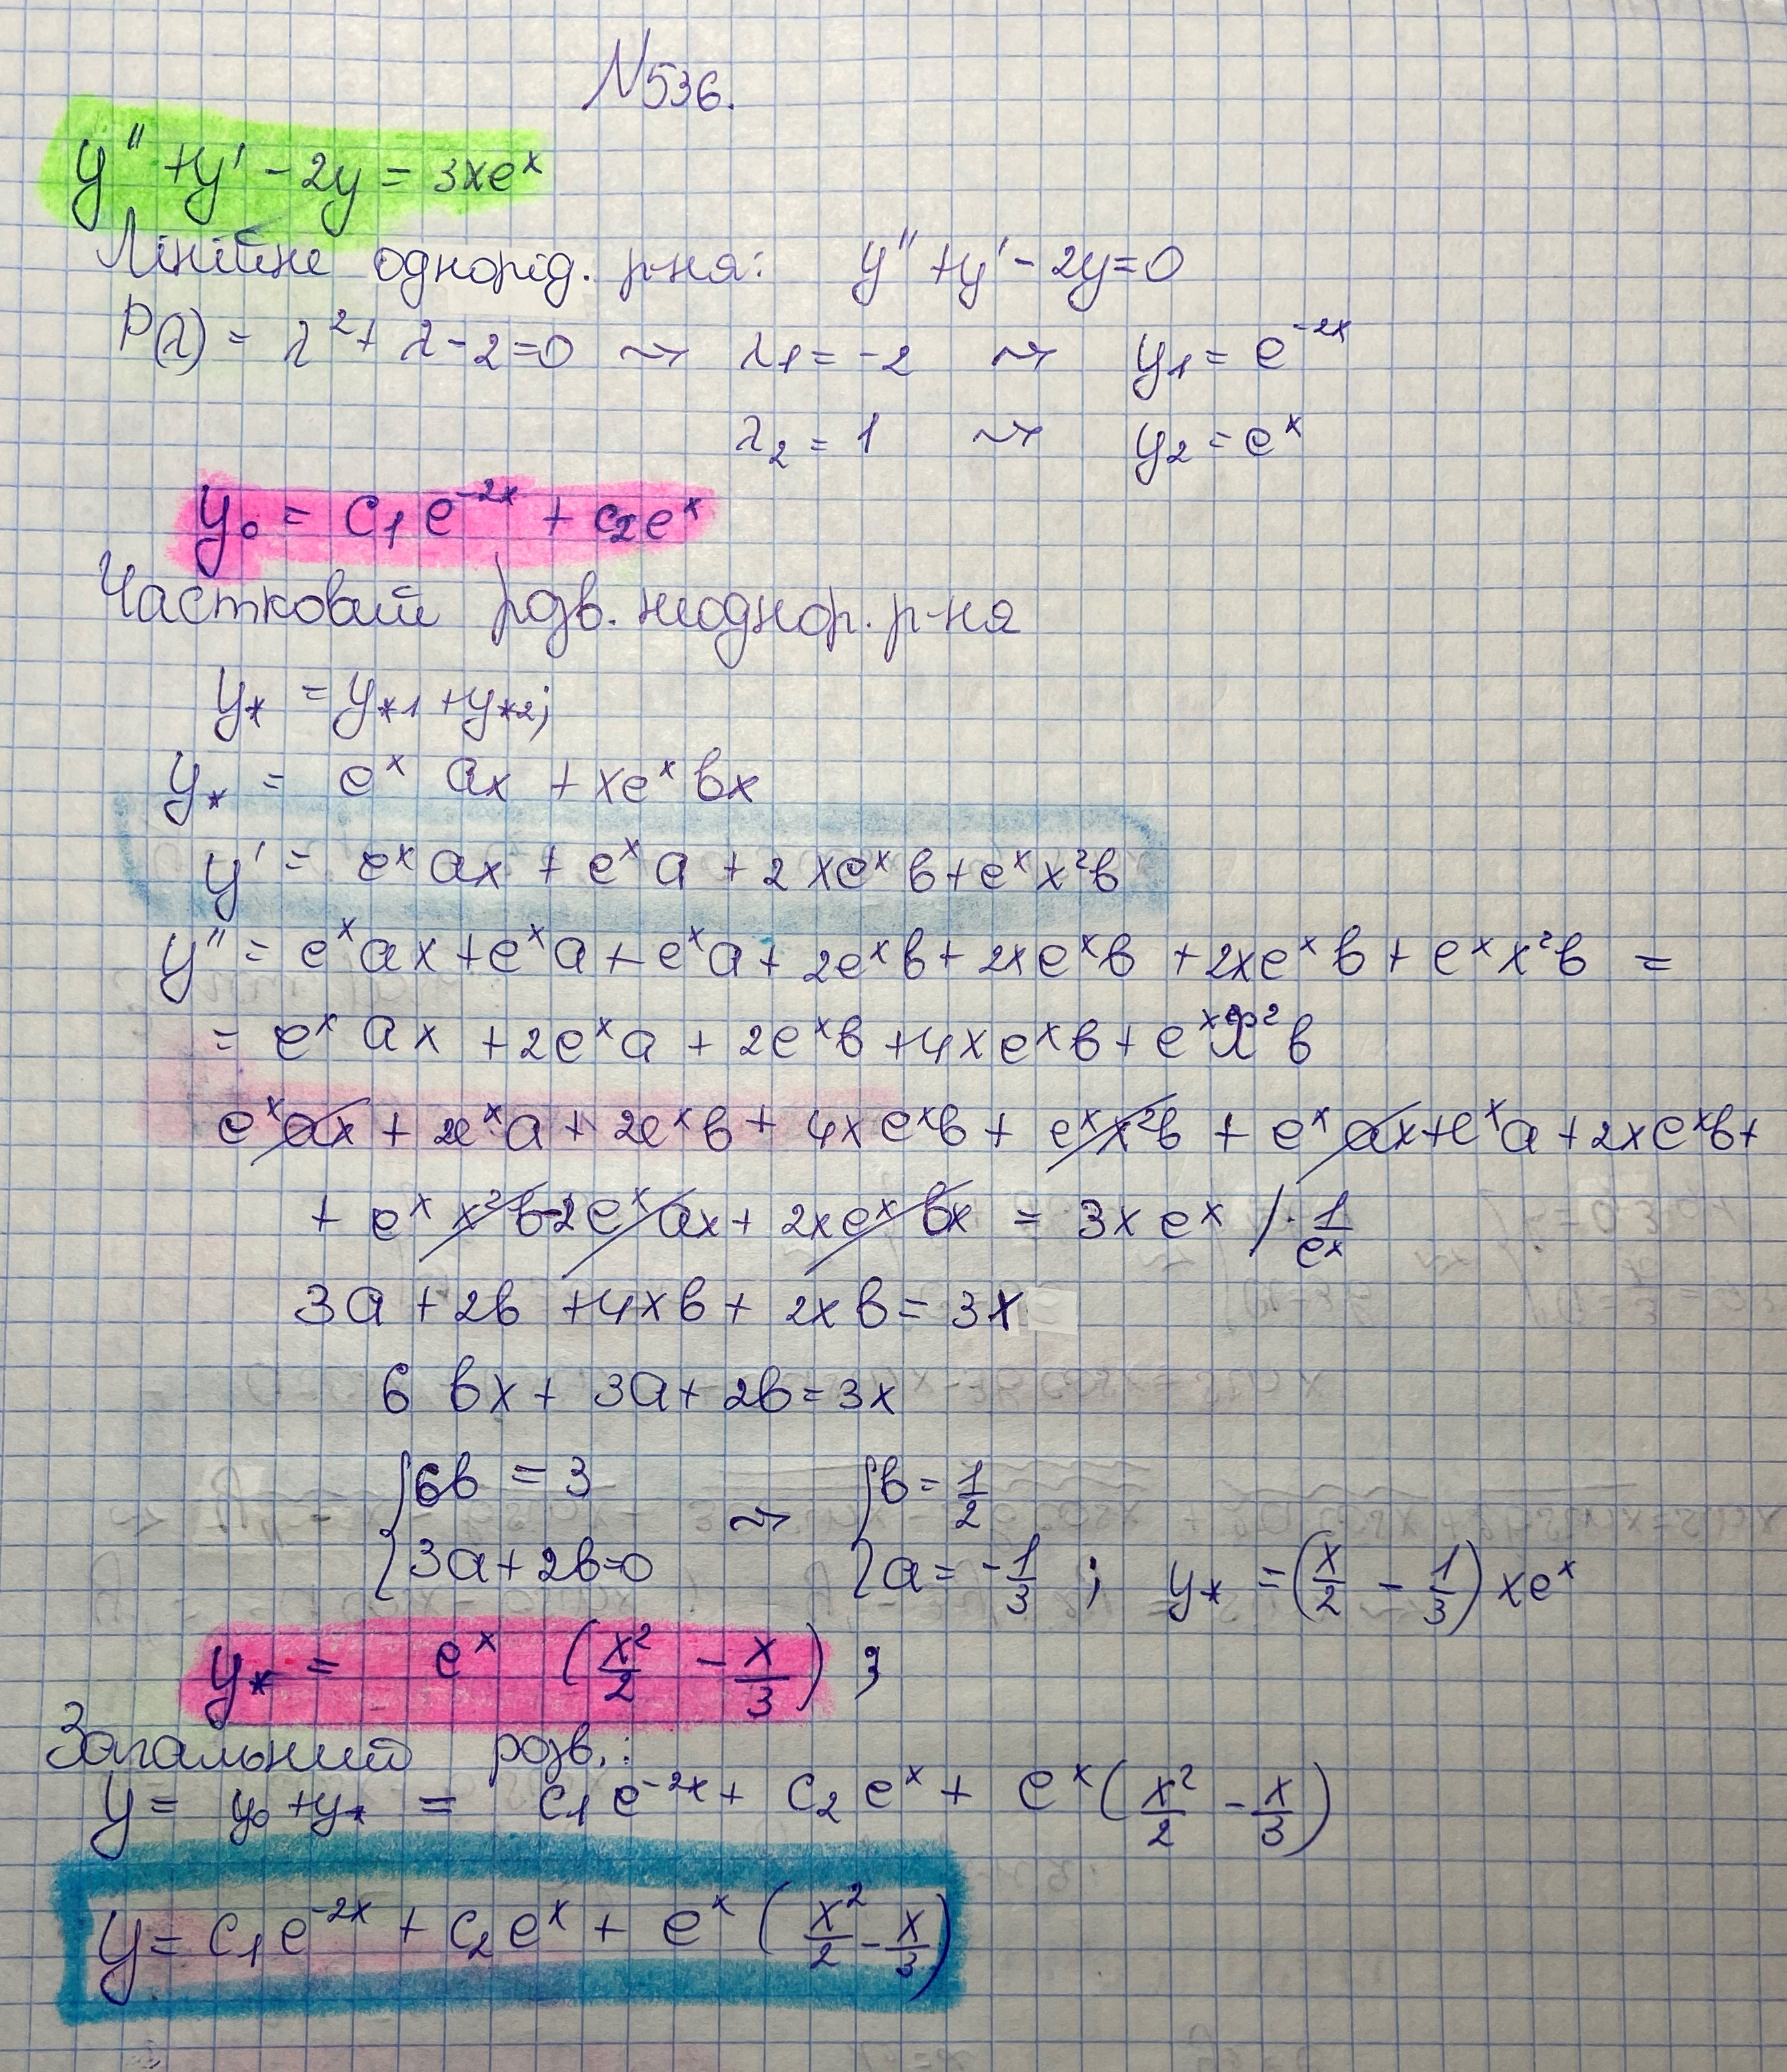 N536.
y'' + y' - 2y = 3xeˣ
Лінійне однорід. р-ня: y'' + y' - 2y = 0
P(λ) = λ² + λ - 2 = 0 ⤳ λ₁ = -2 ⤳ y₁ = e⁻²ˣ
λ₂ = 1 ⤳ y₂ = eˣ
y₀ = C₁e⁻²ˣ + C₂eˣ
Частковий розв. неоднор. р-ня
y* = y*₁ + y*₂;
y* = eˣ ax + xeˣ bx
y' = eˣax + eˣa + 2xeˣb + eˣx²b
y'' = eˣax + eˣa + eˣa + 2eˣb + 2xeˣb + 2xeˣb + eˣx²b =
= eˣ ax + 2eˣa + 2eˣb + 4xeˣb + eˣx²b
eˣax + 2eˣa + 2eˣb + 4xeˣb + eˣx²b + eˣax + eˣa + 2xeˣb +
+ eˣx²b - 2eˣax + 2xeˣbx = 3xeˣ /· 1/eˣ
3a + 2b + 4xb + 2xb = 3x
6 bx + 3a + 2b = 3x
{6b = 3 ⤳ {b = 1/2
{3a + 2b = 0 {a = -1/3 ; y* = (x/2 - 1/3)xeˣ
y* = eˣ (x²/2 - x/3) ;
Загальний розв.:
y = y₀ + y* = C₁e⁻²ˣ + C₂eˣ + eˣ(x²/2 - x/3)
y = C₁e⁻²ˣ + C₂eˣ + eˣ(x²/2 - x/3)